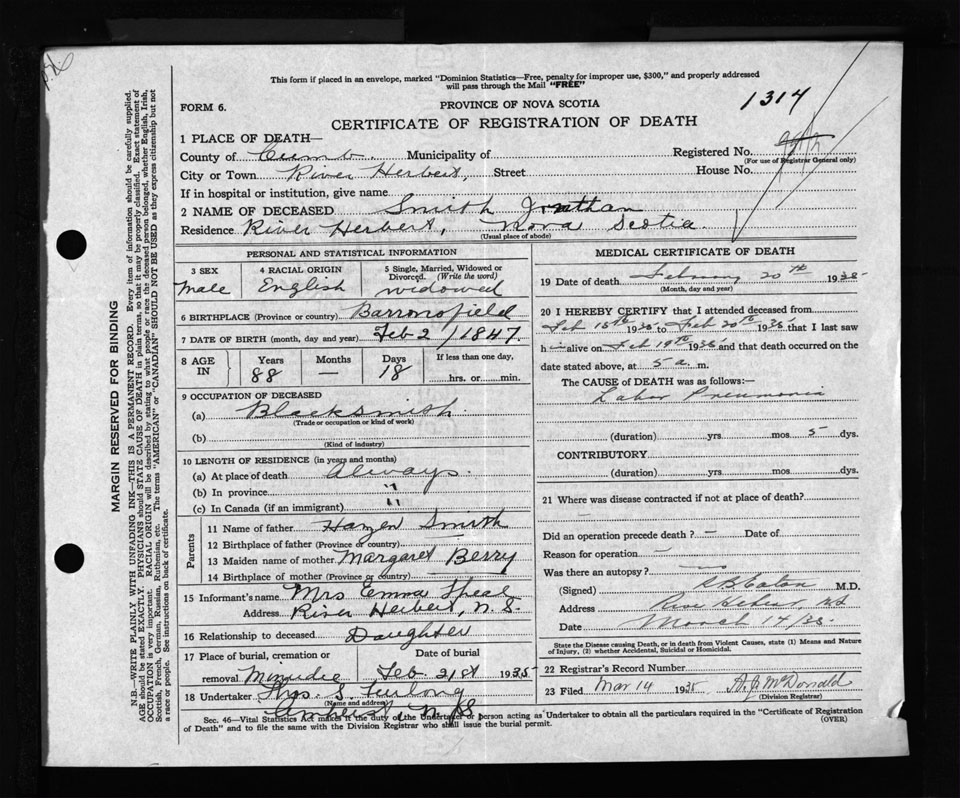 This form if placed in an envelope, marked "Dominion Statistics—Free, penalty for improper use, $300," and properly addressed
will pass through the Mail "FREE"
FORM 6.
PROVINCE OF NOVA SCOTIA
1314
CERTIFICATE OF REGISTRATION OF DEATH
1 PLACE OF DEATH—
County of Cumb. Municipality of Registered No.
(For use of Registrar General only)
City or Town River Herbert, Street House No.
If in hospital or institution, give name
2 NAME OF DECEASED Smith Jonathan
Residence River Herbert, Nova Scotia.
(Usual place of abode)
PERSONAL AND STATISTICAL INFORMATION
3 SEX 4 RACIAL ORIGIN 5 Single, Married, Widowed or Divorced. (Write the word)
Male English widowed
6 BIRTHPLACE (Province or country) Barronsfield
7 DATE OF BIRTH (month, day and year) Feb 2/1847.
8 AGE IN Years Months Days If less than one day,
88 — 18 hrs. or min.
9 OCCUPATION OF DECEASED
(a) Blacksmith
(Trade or occupation or kind of work)
(b)
(Kind of industry)
10 LENGTH OF RESIDENCE (in years and months)
(a) At place of death always.
(b) In province "
(c) In Canada (if an immigrant) "
Parents
11 Name of father Hazen Smith
12 Birthplace of father (Province or country)
13 Maiden name of mother Margaret Berry
14 Birthplace of mother (Province or country)
15 Informant's name Mrs Emma
Address River Herbert, N.S.
16 Relationship to deceased Daughter
17 Place of burial, cremation or Date of burial
removal Minudie Feb 21st 1935
18 Undertaker Thos. S. Furlong
(Name and address)
Amherst, N.S
MEDICAL CERTIFICATE OF DEATH
19 Date of death February 20th 1935
(Month, day and year)
20 I HEREBY CERTIFY that I attended deceased from
Feb 15th 1935 to Feb 20th 1935 that I last saw
h alive on Feb 19th 1935 and that death occurred on the
date stated above, at 5 a m.
The CAUSE OF DEATH was as follows:—
Lobar Pneumonia
(duration) yrs. mos 5 dys.
CONTRIBUTORY
(duration) yrs. mos. dys.
21 Where was disease contracted if not at place of death?
Did an operation precede death? — Date of
Reason for operation —
Was there an autopsy?
(Signed) Eaton M.D.
Address River Hebert, NS
Date March 14/35
State the Disease causing Death, or in death from Violent Causes, state (1) Means and Nature
of Injury, (2) whether Accidental, Suicidal or Homicidal.
22 Registrar's Record Number
23 Filed Mar 14 1935 McDonald
(Division Registrar)
Sec. 46—Vital Statistics Act makes it the duty of the Undertaker or person acting as Undertaker to obtain all the particulars required in the "Certificate of Registration
of Death" and to file the same with the Division Registrar who shall issue the burial permit. (OVER)
MARGIN RESERVED FOR BINDING
N.B.—WRITE PLAINLY WITH UNFADING INK—THIS IS A PERMANENT RECORD. Every item of information should be carefully supplied.
AGE should be stated EXACTLY. PHYSICIANS should STATE CAUSE OF DEATH in plain terms, so that it may be properly classified. Exact statement of
OCCUPATION is very important. RACIAL ORIGIN will be described by stating to what people or race the deceased person belonged, whether English, Irish,
Scottish, French, German, Russian, Ruthenian, etc. The terms "AMERICAN" or "CANADIAN" SHOULD NOT BE USED as they express citizenship but not
a race or people. See instructions on back of certificate.